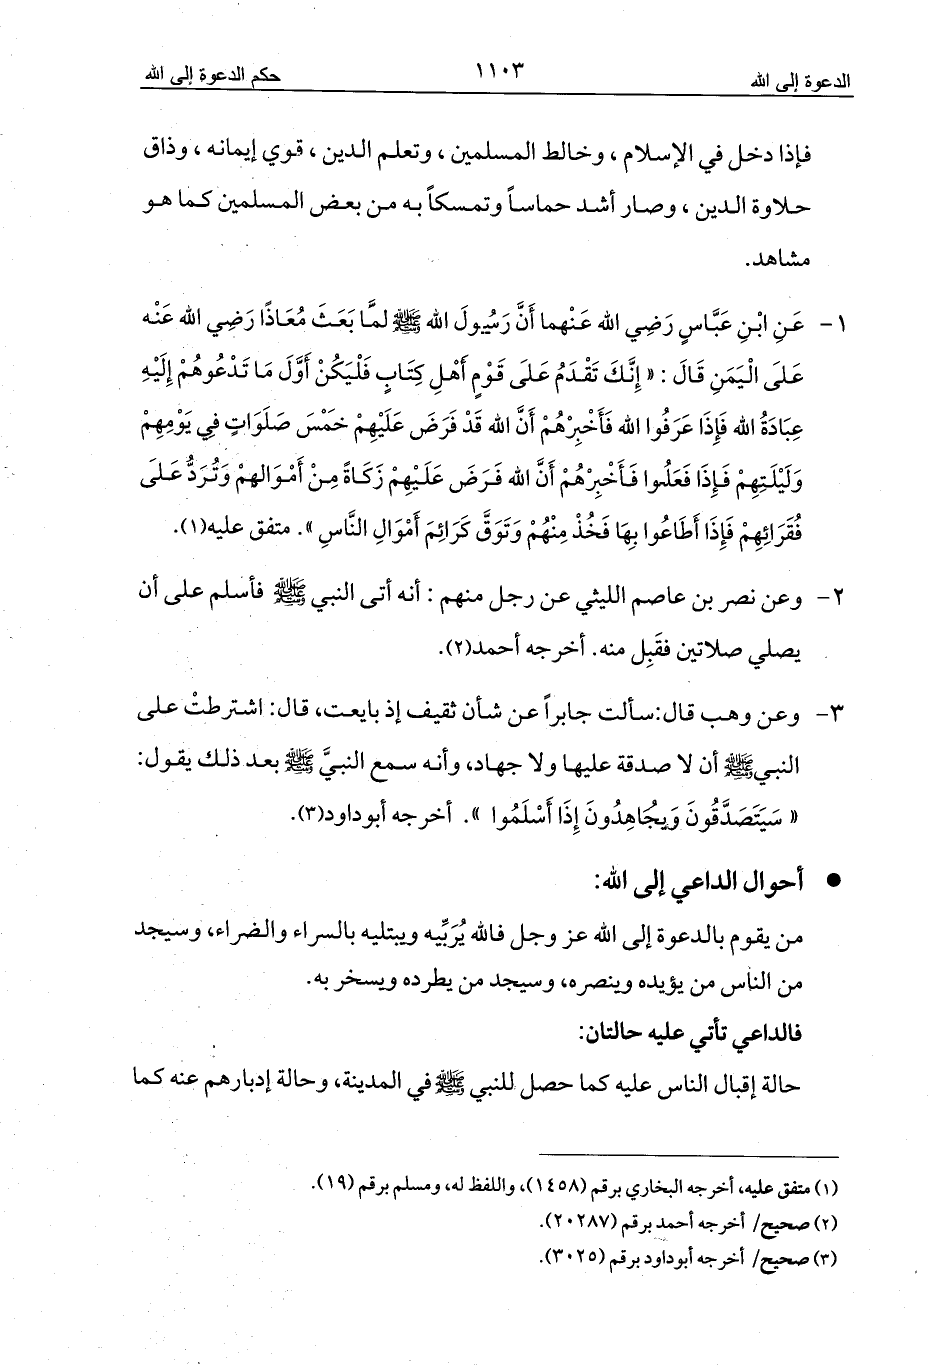 الدعوة إلى الله ١١٠٣ حكم الدعوة إلى الله
فإذا دخل في الإسلام ، وخالط المسلمين ، وتعلم الدين ، قوي إيمانه ، وذاق
حلاوة الدين ، وصار أشد حماساً وتمسكاً به من بعض المسلمين كما هو
مشاهد.
١- عَنِ ابْنِ عَبَّاسٍ رَضِي الله عَنْهما أَنَّ رَسُولَ الله ﷺ لمَّا بَعَثَ مُعَاذًا رَضِي الله عَنْه
عَلَى الْيَمَنِ قَالَ : « إِنَّكَ تَقْدَمُ عَلَى قَوْمٍ أَهْلِ كِتَابٍ فَلْيَكُنْ أَوَّلَ مَا تَدْعُوهُمْ إِلَيْهِ
عِبَادَةُ الله فَإِذَا عَرَفُوا الله فَأَخْبِرْهُمْ أَنَّ الله قَدْ فَرَضَ عَلَيْهِمْ خَمْسَ صَلَوَاتٍ فِي يَوْمِهِمْ
وَلَيْلَتِهِمْ فَإِذَا فَعَلُوا فَأَخْبِرْهُمْ أَنَّ الله فَرَضَ عَلَيْهِمْ زَكَاةً مِنْ أَمْوَالهِمْ وَتُرَدُّ عَلَى
فُقَرَائِهِمْ فَإِذَا أَطَاعُوا بِهَا فَخُذْ مِنْهُمْ وَتَوَقَّ كَرَائِمَ أَمْوَالِ النَّاسِ ». متفق عليه(١).
٢- وعن نصر بن عاصم الليثي عن رجل منهم : أنه أتى النبي ﷺ فأسلم على أن
يصلي صلاتين فقَبِل منه. أخرجه أحمد(٢).
٣- وعن وهب قال:سألت جابراً عن شأن ثقيف إذ بايعت، قال: اشترطتْ على
النبيﷺ أن لا صدقة عليها ولا جهاد، وأنه سمع النبيَّ ﷺ بعد ذلك يقول:
« سَيَتَصَدَّقُونَ وَيجُاهِدُونَ إِذَا أَسْلَمُوا ». أخرجه أبوداود(٣).
● أحوال الداعي إلى الله:
من يقوم بالدعوة إلى الله عز وجل فالله يُرَبِّيه ويبتليه بالسراء والضراء، وسيجد
من الناس من يؤيده وينصره، وسيجد من يطرده ويسخر به.
فالداعي تأتي عليه حالتان:
حالة إقبال الناس عليه كما حصل للنبي ﷺ في المدينة، وحالة إدبارهم عنه كما
(١) متفق عليه، أخرجه البخاري برقم (١٤٥٨)، واللفظ له، ومسلم برقم (١٩).
(٢) صحيح/ أخرجه أحمد برقم (٢٠٢٨٧).
(٣) صحيح/ أخرجه أبوداود برقم (٣٠٢٥).